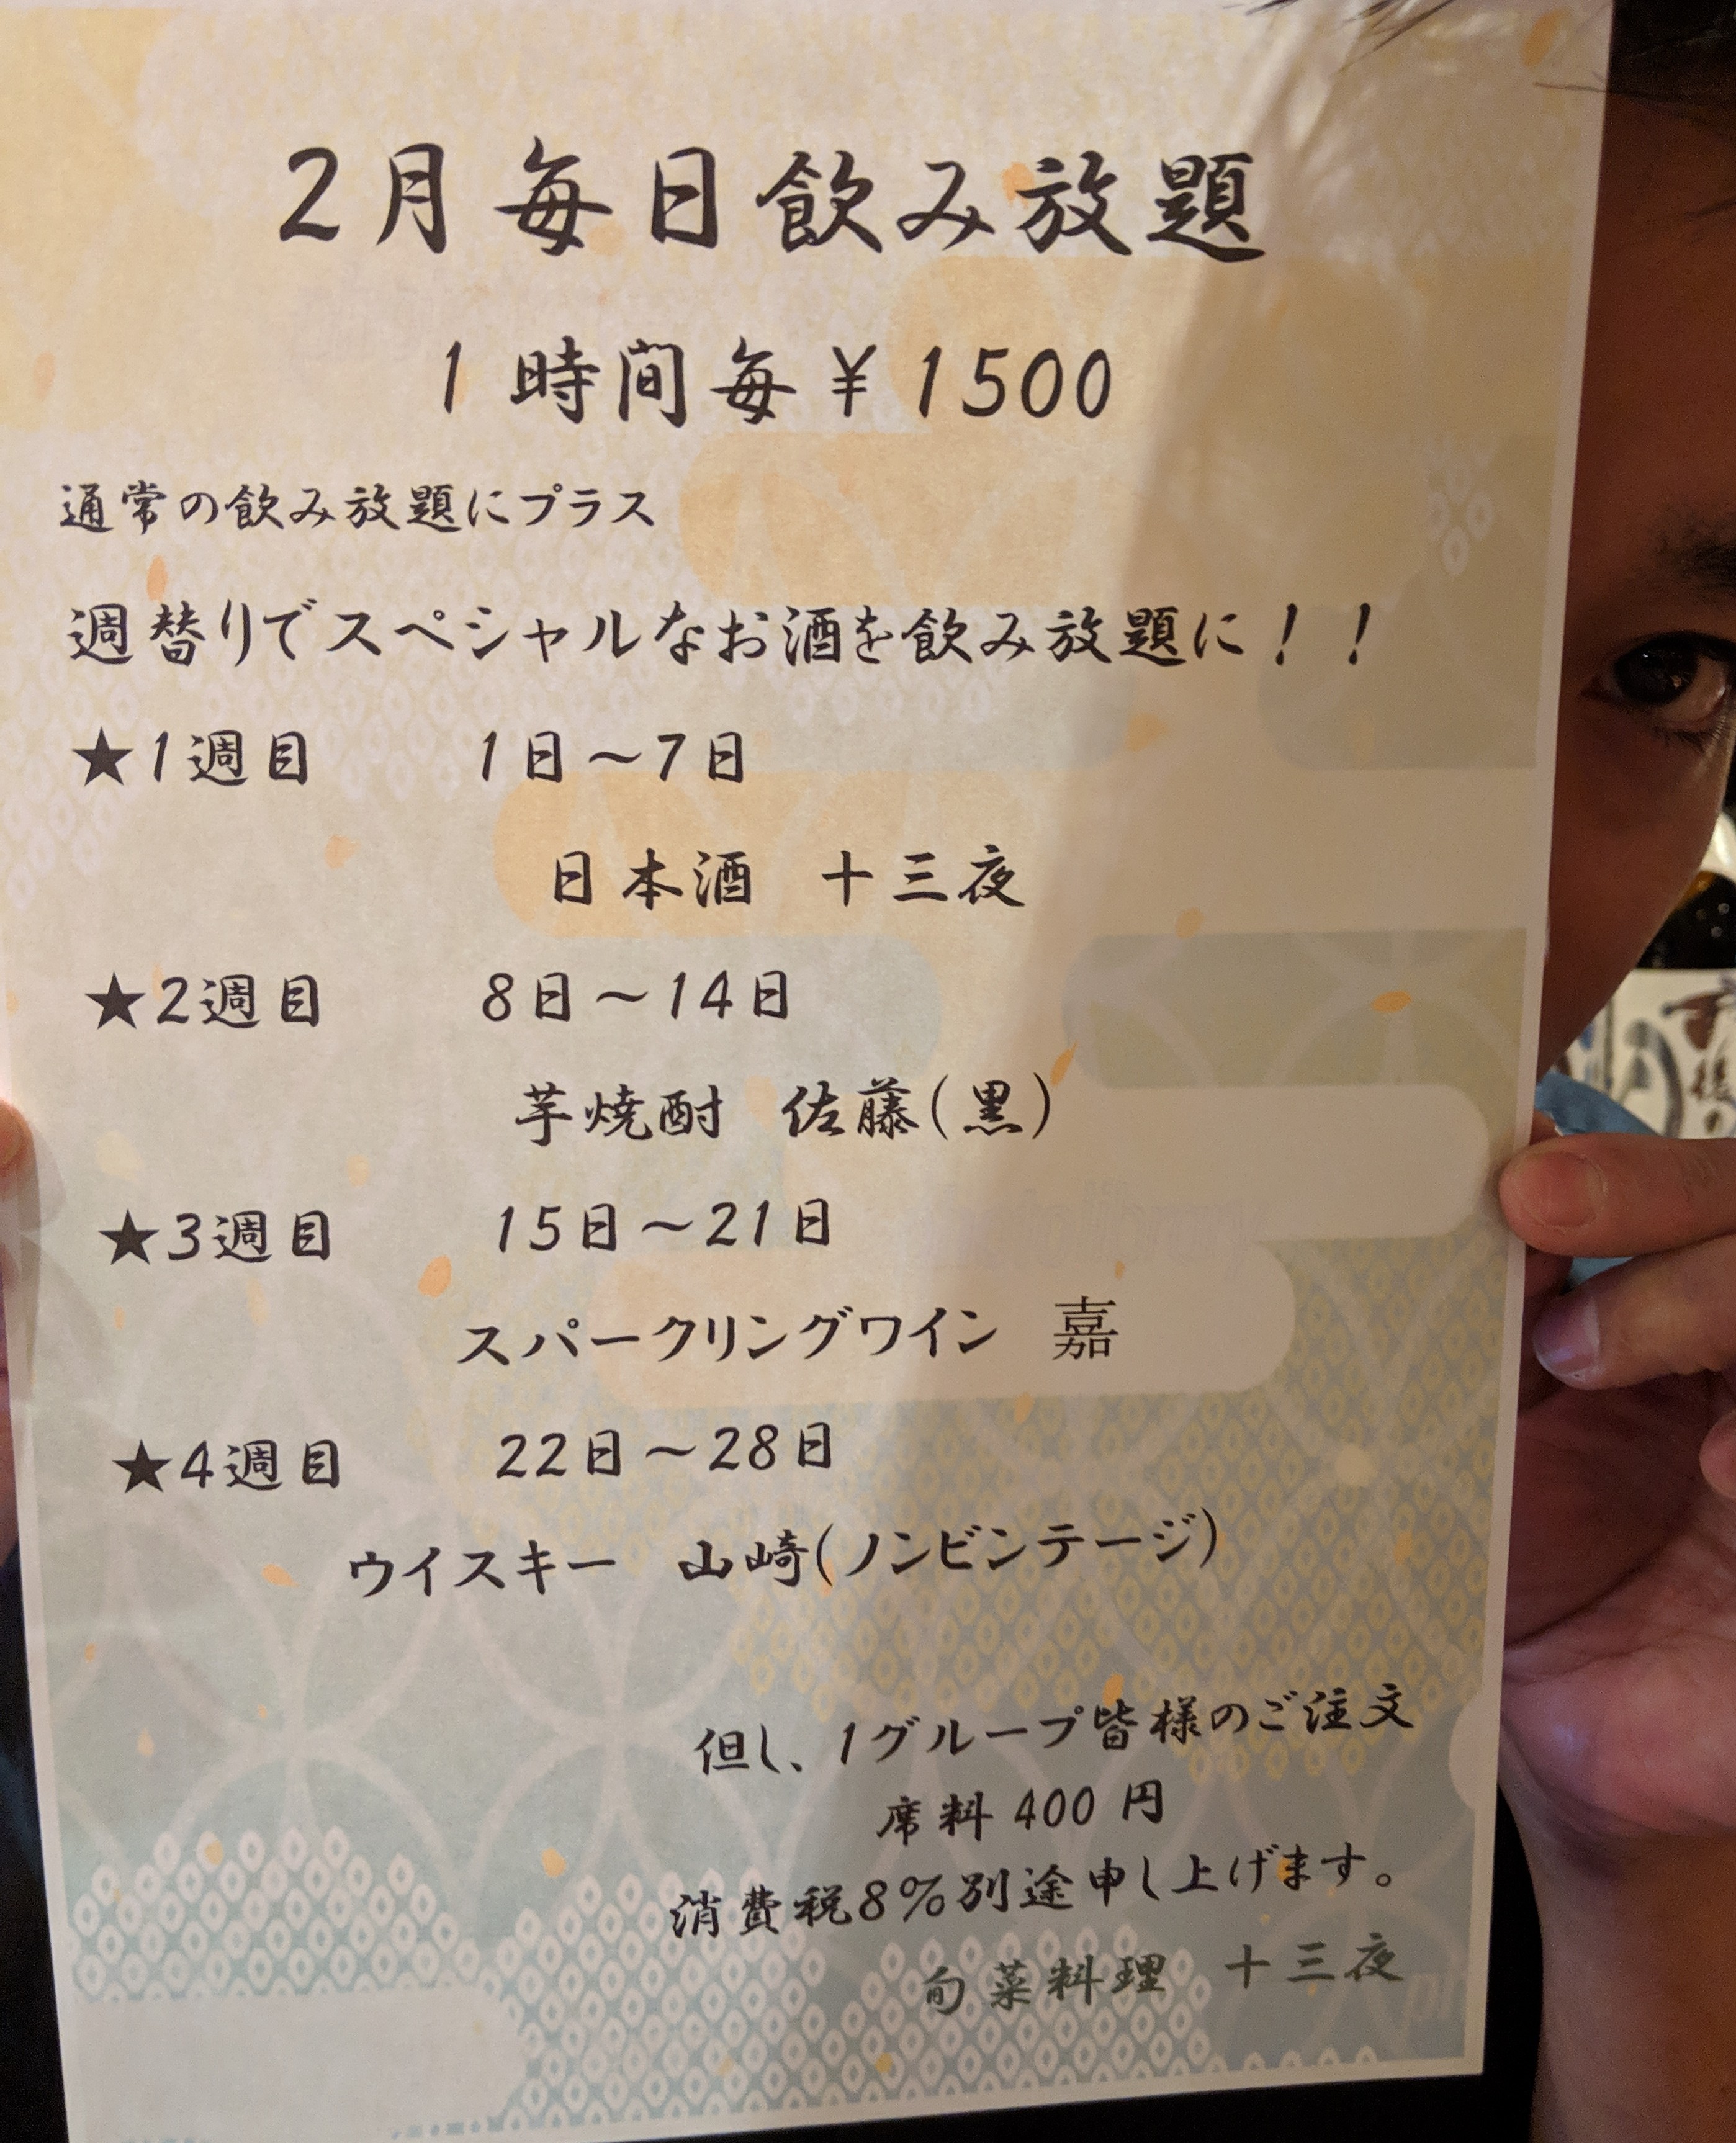 2月毎日飲み放題
1時間毎¥1500
通常の飲み放題にプラス
週替りでスペシャルなお酒を飲み放題に！！
★1週目 1日～7日
日本酒 十三夜
★2週目 8日～14日
芋焼酎 佐藤(黒)
★3週目 15日～21日
スパークリングワイン 嘉
★4週目 22日～28日
ウイスキー 山崎(ノンビンテージ)
但し、1グループ皆様のご注文
席料400円
消費税8%別途申し上げます。
旬菜料理 十三夜